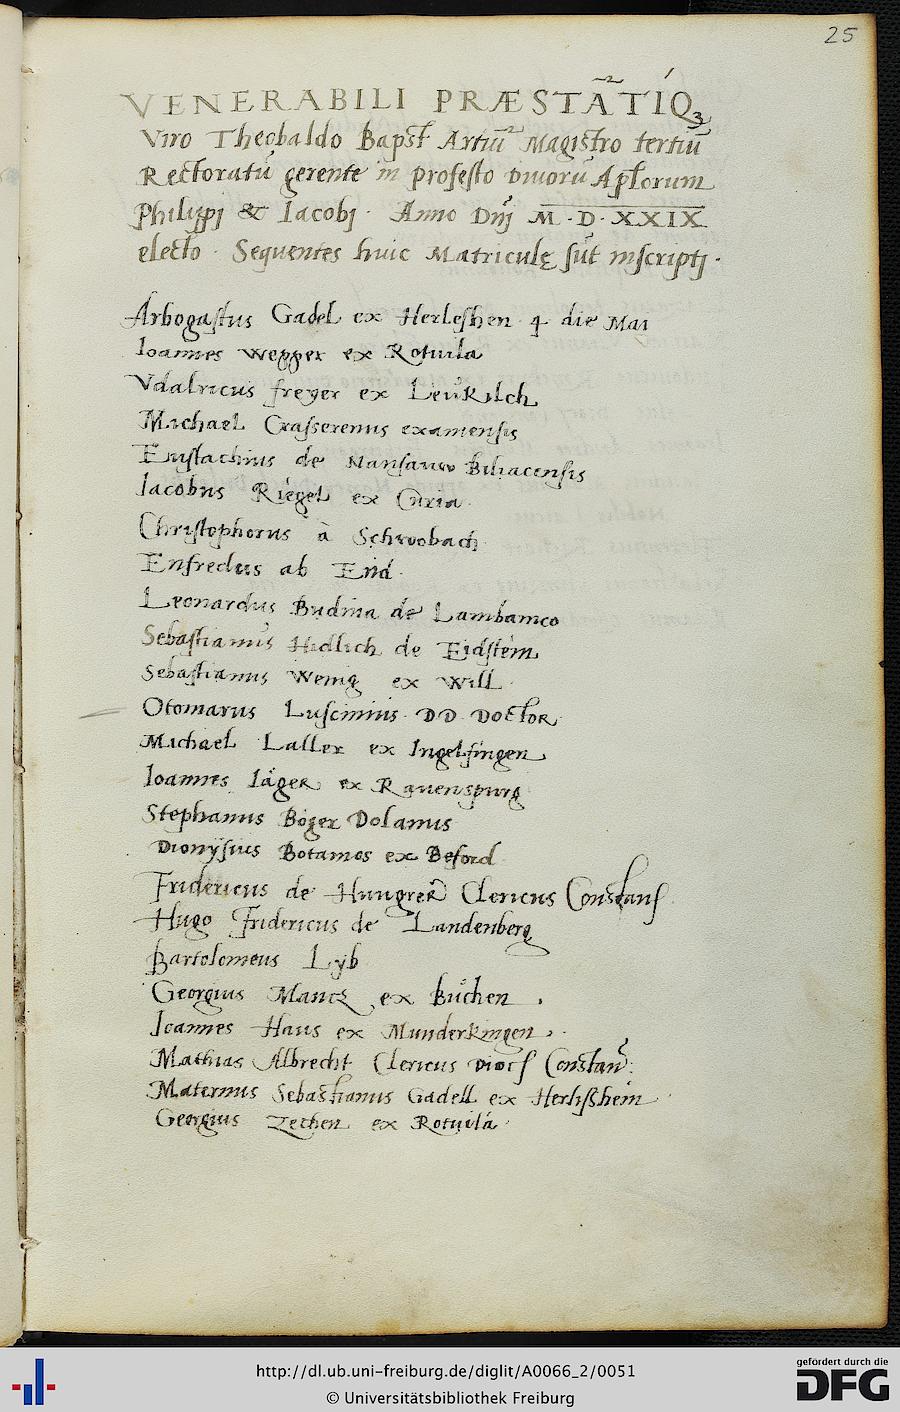 25
VENERABILI PRÆSTÃTIQꝫ
Viro Theobaldo Bapst Artiũ Magistro tertiũ
Rectoratũ gerente in profesto Diuorũ Aplorum
Philippi & Iacobj · Anno Dnj M · D · XXIX
electo · Sequentes huic Matriculę sũt inscriptj ·
Arbogastus Gadel ex Herleshen 4 die Mai
Ioannes Wepper ex Rotuila
Vdalricus freyer ex Leukilch
Michael Crasserenus examensis
Eustachius de Biliacensis
Iacobus Riegel ex Curia
Christophorus à Schwobach
Enfredus ab End ·
Leonardus Budina de
Sebastianus Hidlich de Eidstein
Sebastianus Wenig ex Will
Otomarus Luscinius DD Doctor
Michael Laller ex Ingelfingen
Ioannes Iäger ex Rauenspurg
Stephanus Böger Dolanus
Dionysius Botamos ex Beford
Fridericus de Clericus Constans
Hugo Fridericus de Landenberg
Bartolomeus Lyb
Georgius Mancz ex Büchen .
Ioannes Haus ex Munderkingen .
Mathias Albrecht Clericus Diocs Constan̄ .
Maternus Sebastianus Gadell ex Herlissheim
Georgius Zechen ex Rotuila ·
http://dl.ub.uni-freiburg.de/diglit/A0066_2/0051
© Universitätsbibliothek Freiburg
gefördert durch die
DFG